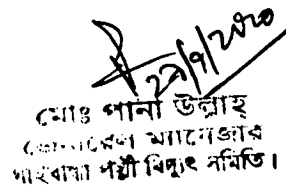 ২৯/৭/২০২০
মোঃ গানী উল্লাহ্
জেনারেল ম্যানেজার
গাইবান্ধা পল্লী বিদ্যুৎ সমিতি।